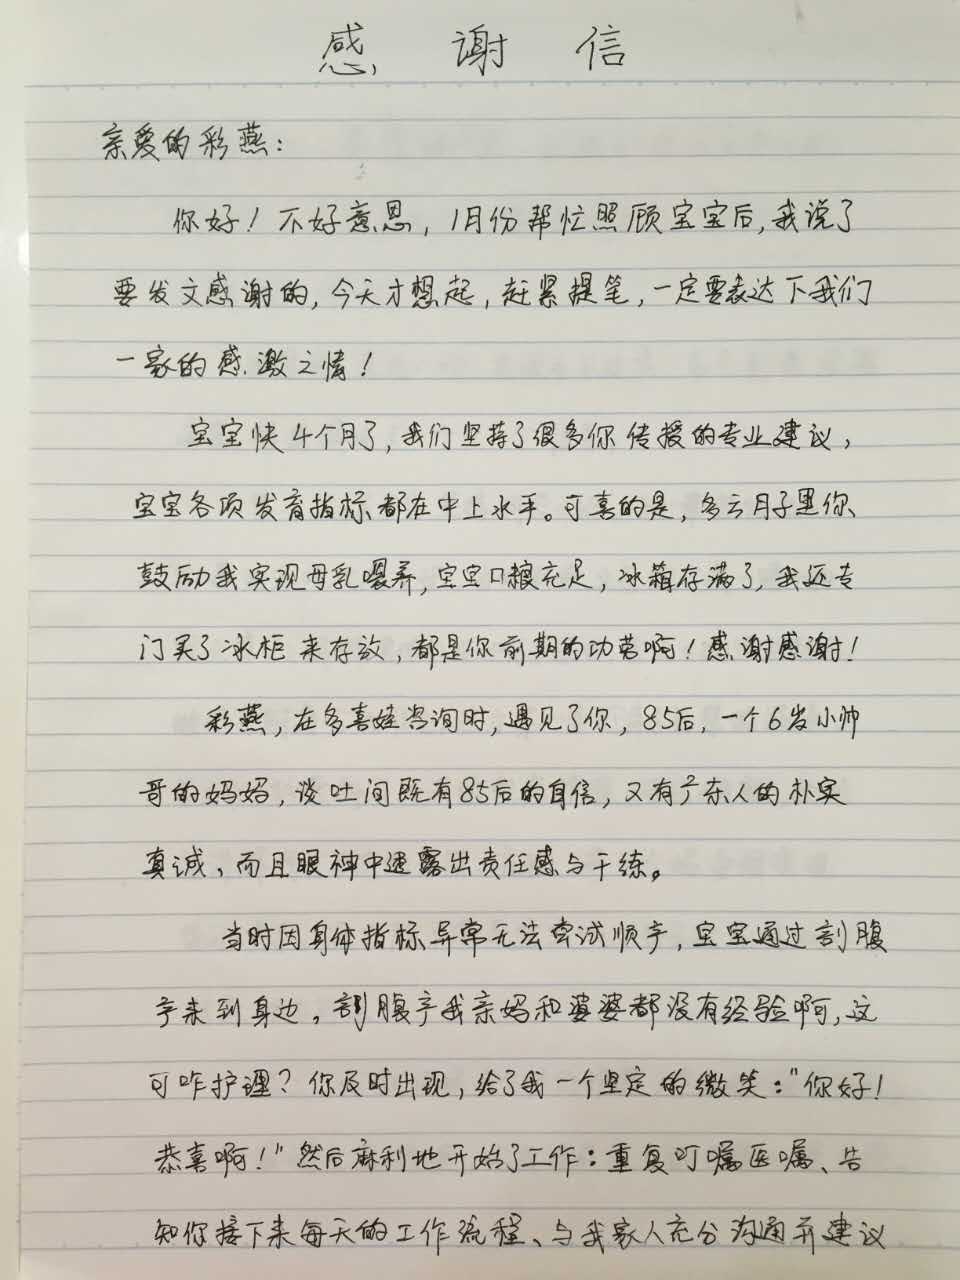 感谢信
亲爱的彩燕：
你好！不好意思，1月份帮忙照顾宝宝后，我说了
要发文感谢的，今天才想起，赶紧提笔，一定要表达下我们
一家的感激之情！
宝宝快4个月了，我们坚持了很多你传授的专业建议，
宝宝各项发育指标都在中上水平。可喜的是，多亏月子里你
鼓励我实现母乳喂养，宝宝口粮充足，冰箱存满了，我还专
门买了冰柜来存放，都是你前期的功劳啊！感谢感谢！
彩燕，在多喜娃咨询时，遇见了你，85后，一个6岁小帅
哥的妈妈，谈吐间既有85后的自信，又有广东人的朴实
真诚，而且眼神中透露出责任感与干练。
当时因身体指标异常无法尝试顺产，宝宝通过剖腹
产来到身边，剖腹产我亲妈和婆婆都没有经验啊，这
可咋护理？你及时出现，给了我一个坚定的微笑："你好！
恭喜啊！"然后麻利地开始了工作：重复叮嘱医嘱、告
知你接下来每天的工作流程、与我家人充分沟通并建议